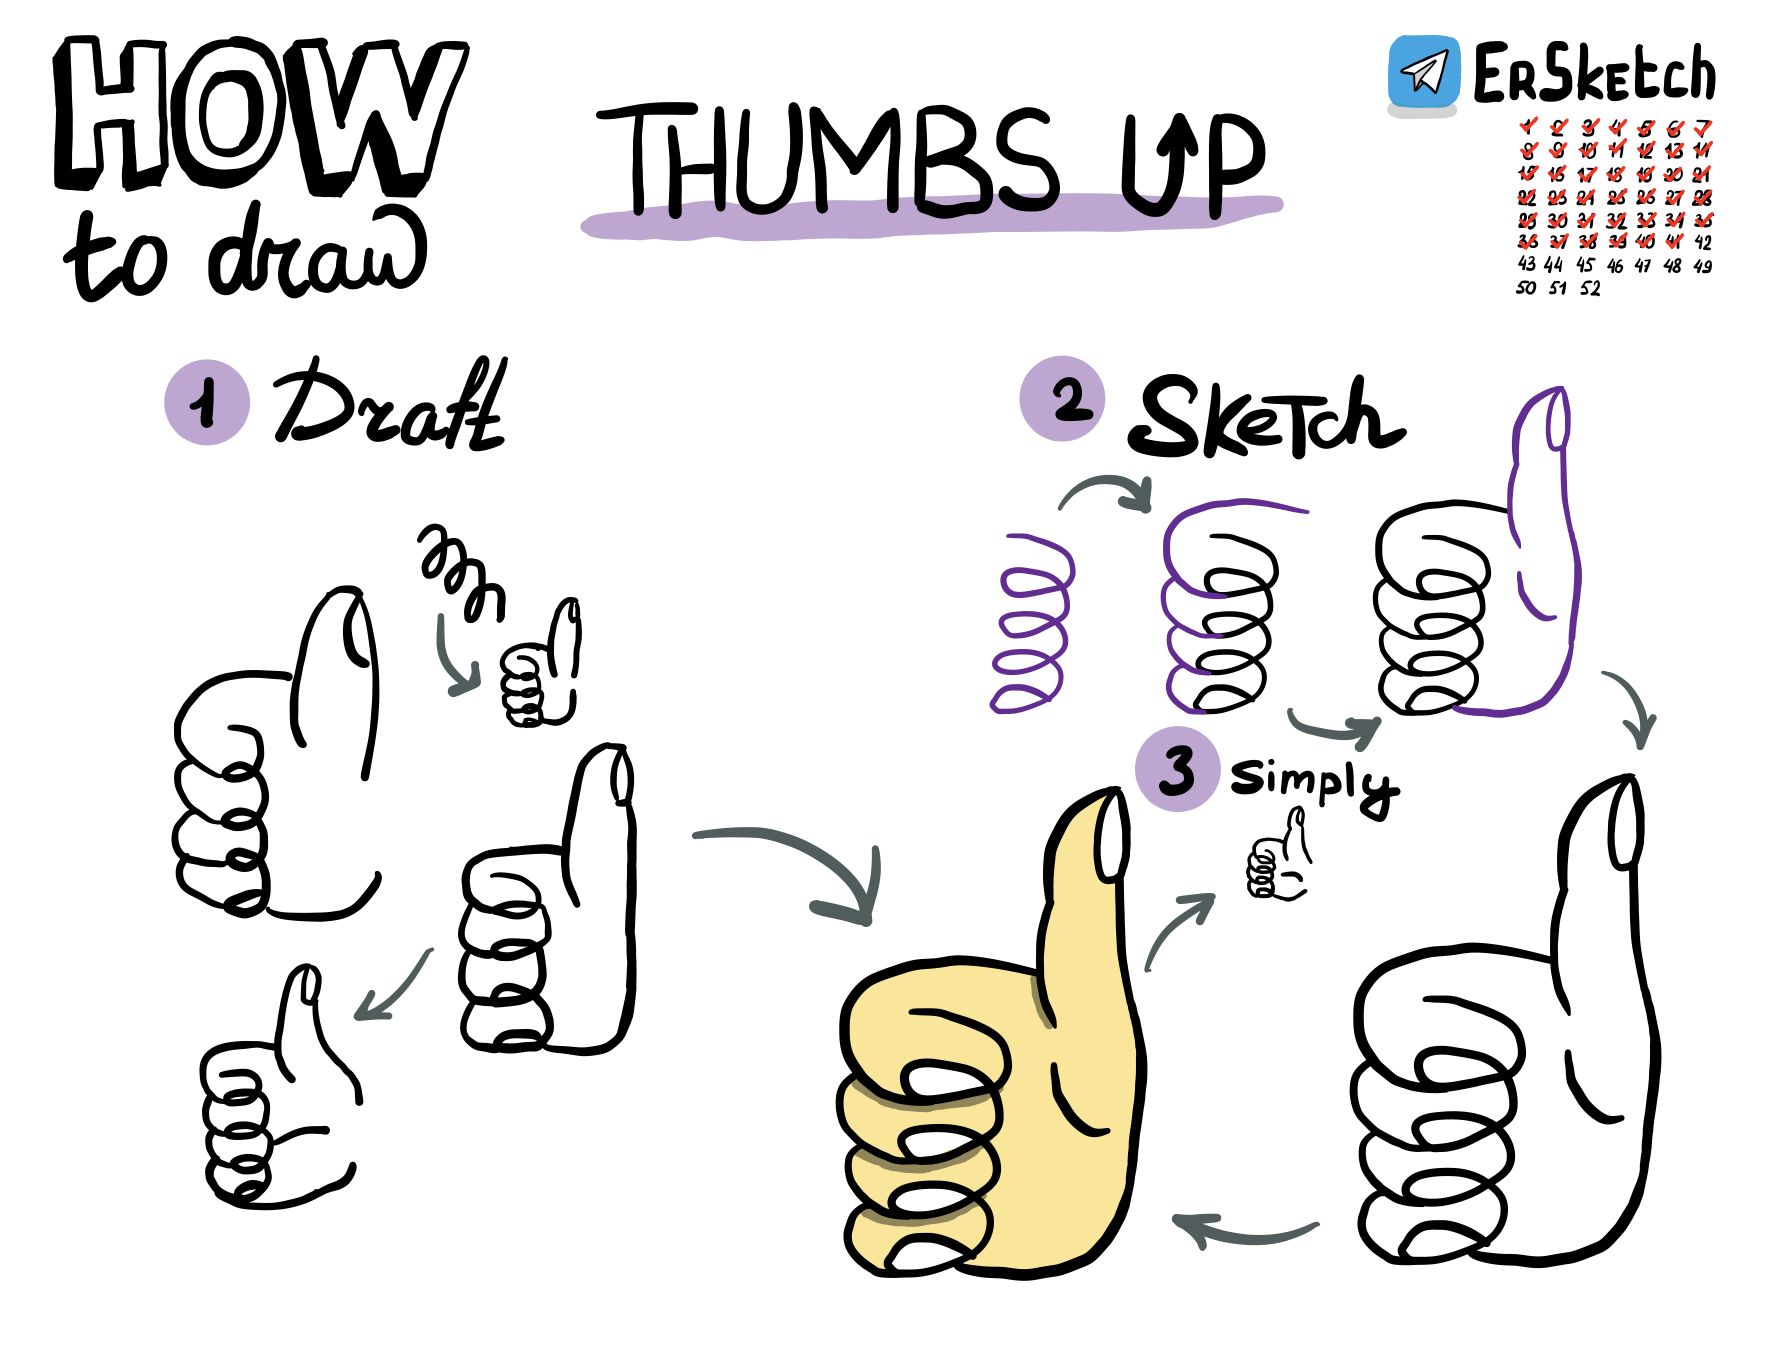 HOW
to draw
THUMBS UP
ErSketch
1 2 3 4 5 6 7
8 9 10 11 12 13 14
15 16 17 18 19 20 21
22 23 24 25 26 27 28
29 30 31 32 33 34 35
36 37 38 39 40 41 42
43 44 45 46 47 48 49
50 51 52
1 Draft
2 Sketch
3 Simply